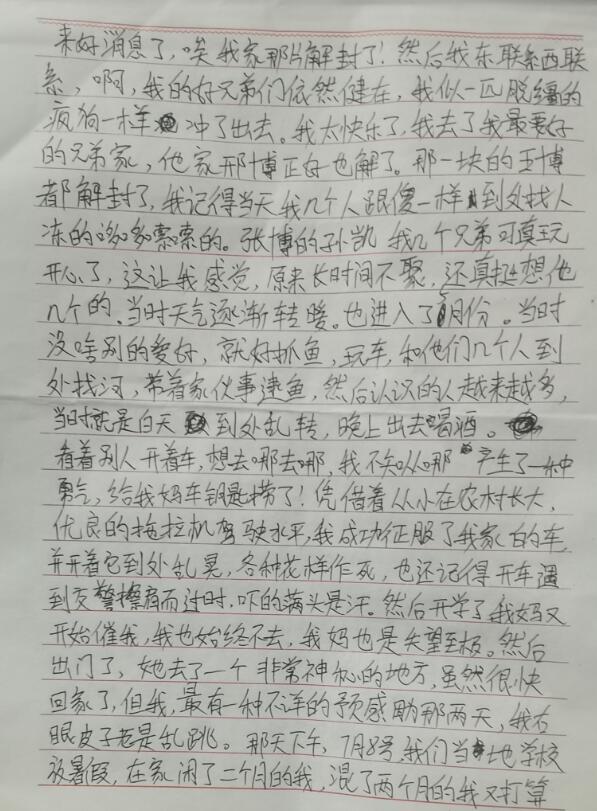 来好消息了,唉我家那片解封了!然后我东联系西联
系,啊,我的好兄弟们依然健在,我似一匹脱缰的
疯狗一样冲了出去。我太快乐了,我去了我最要好
的兄弟家,他家邢博正好也解了。那一块的王博
都解封了,我记得当天我几个人跟傻一样到处找人
冻的哆哆索索的。张博的孙凯我几个兄弟可真玩
开心了,这让我感觉,原来长时间不聚,还真挺想他
几个的、当时天气逐渐转暖。也进入了5月份。当时
没啥别的爱好,就好抓鱼,玩车,和他们几个人到
处找河,带着家伙事逮鱼,然后认识的人越来越多,
当时就是白天到处乱转,晚上出去喝酒。
看着别人开着车,想去哪去哪,我不知从哪产生了一种
勇气,给我妈车钥匙捞了!凭借着从小在农村长大,
优良的拖拉机驾驶水平,我成功征服了我家的车,
并开着它到处乱晃,各种花样作死,也还记得开车遇
到交警擦肩而过时,吓的满头是汗。然后开学了我妈又
开始催我,我也始终不去,我妈也是失望至极。然后
出门了,她去了一个非常神秘的地方,虽然很快
回家了,但我,最有一种不详的预感助那两天,我右
眼皮子老是乱跳。那天下午,7月8号,我们当地学校
放暑假,在家闲了二个月的我,混了两个月的我又打算